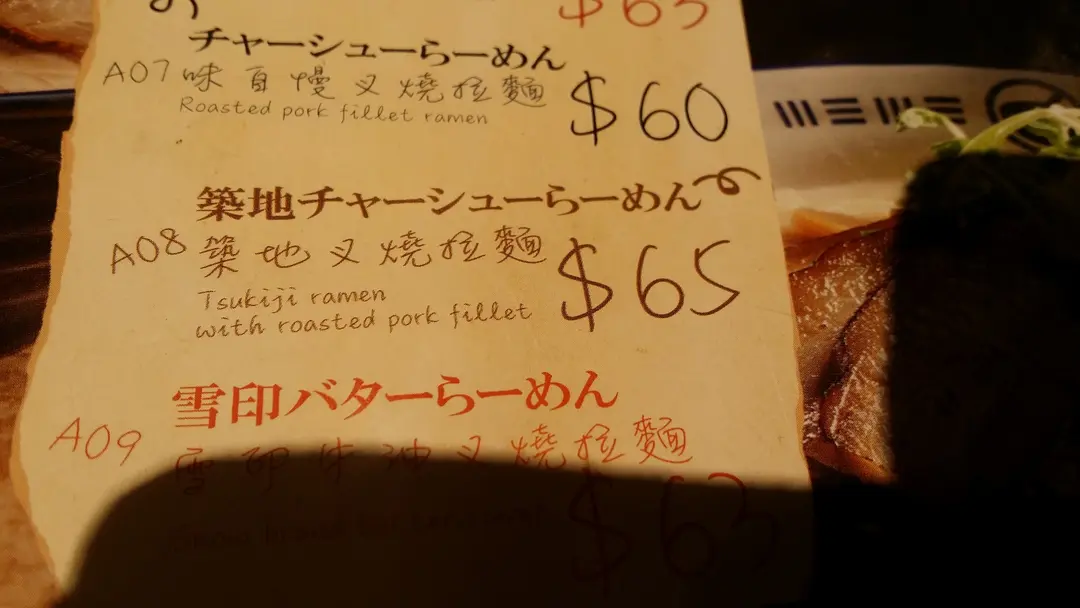 $63
チャーシューらーめん
A07 味自慢叉燒拉麵
Roasted pork fillet ramen
$60
築地チャーシューらーめん
A08 築地叉燒拉麵
$65
Tsukiji ramen
with roasted pork fillet
雪印バターらーめん
A09 雪印牛油叉燒拉麵
$63